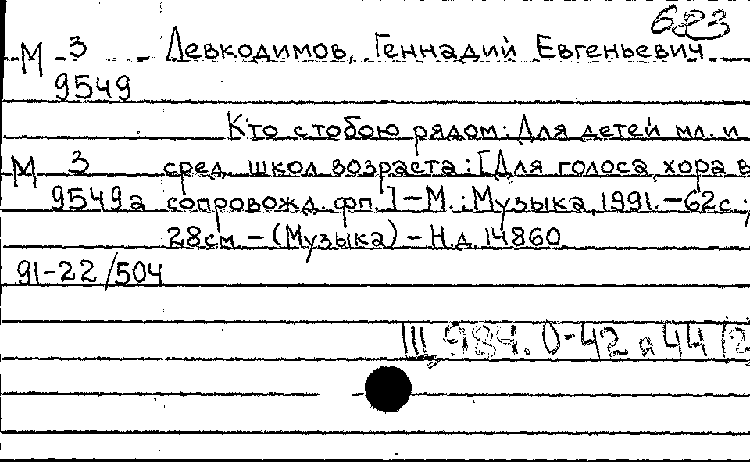 623
М 3 Левкодимов, Геннадий Евгеньевич
9549
Кто с тобою рядом: Для детей мл. и
М 3 сред. школ. возраста: [Для голоса, хора в
9549а сопровожд. фп.] – М.: Музыка, 1991. – 62с.;
28см – (Музыка) – Н.д. 14860
91-22/504
III, 984. 0-42 а 44 (2